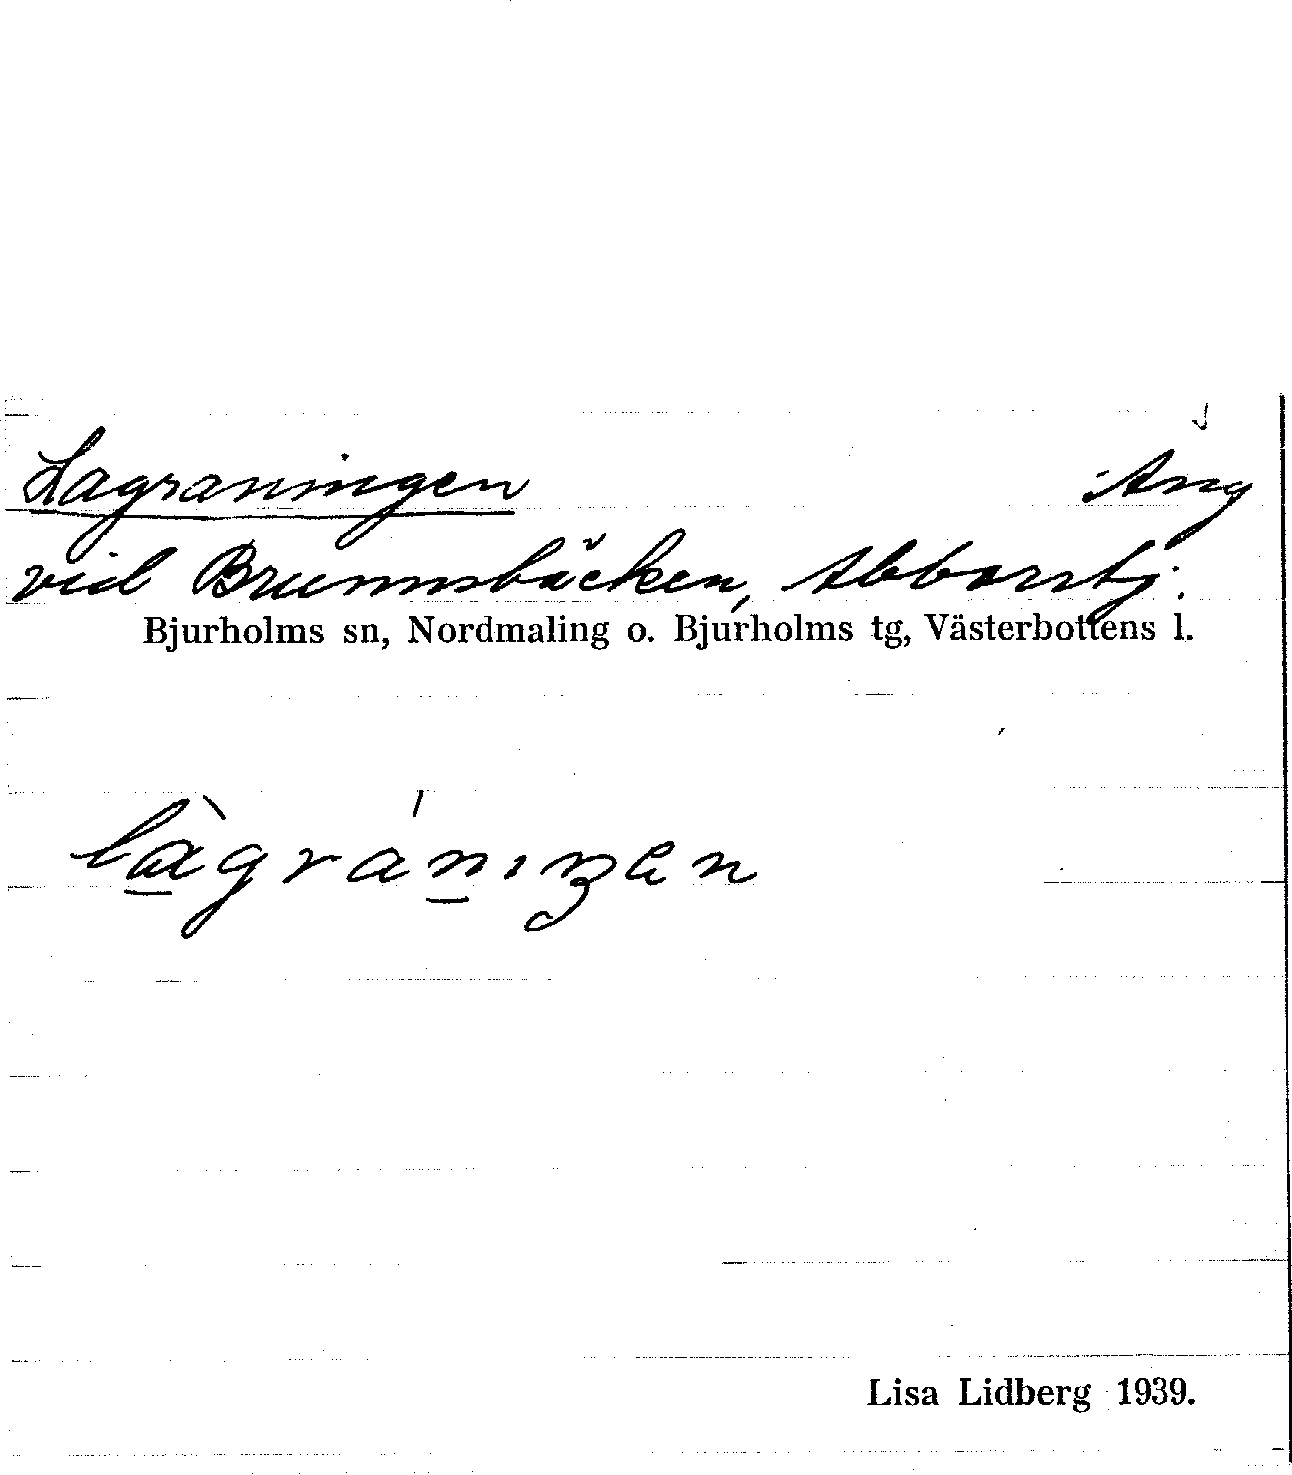 Lagraningen Äng
vid Brunnsbäcken, Abborrtj.
Bjurholms sn, Nordmaling o. Bjurholms tg, Västerbottens l.
Lisa Lidberg 1939.